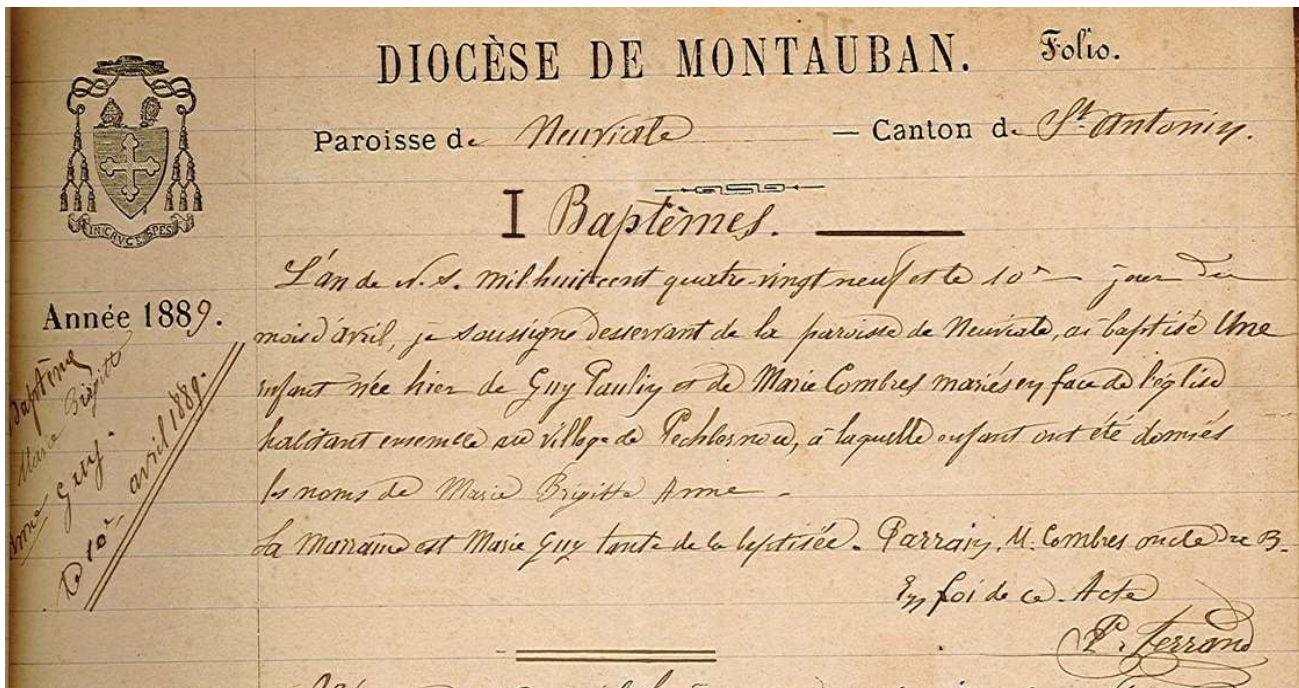 DIOCÈSE DE MONTAUBAN. Folio.
Paroisse de Neuviale — Canton de St. Antonin.
IN CRUCE SPES
I Baptêmes.
Année 1889.
Baptême
Marie Brigitte
Anne Guy.
le 10e avril 1889.
L'an de N. S. mil huit cent quatre-vingt neuf et le 10e jour du
mois d'avril, je soussigné desservant de la paroisse de Neuviale, ai baptisé Une
enfant née hier de Guy Paulin et de Marie Combres mariés en face de l'église
habitant ensemble au village de, à laquelle enfant ont été donnés
les noms de Marie Brigitte Anne -
La Marraine est Marie Guy tante de la baptisée. Parrain, M. Combres oncle B.
En foi de ce Acte
P. Ferrand